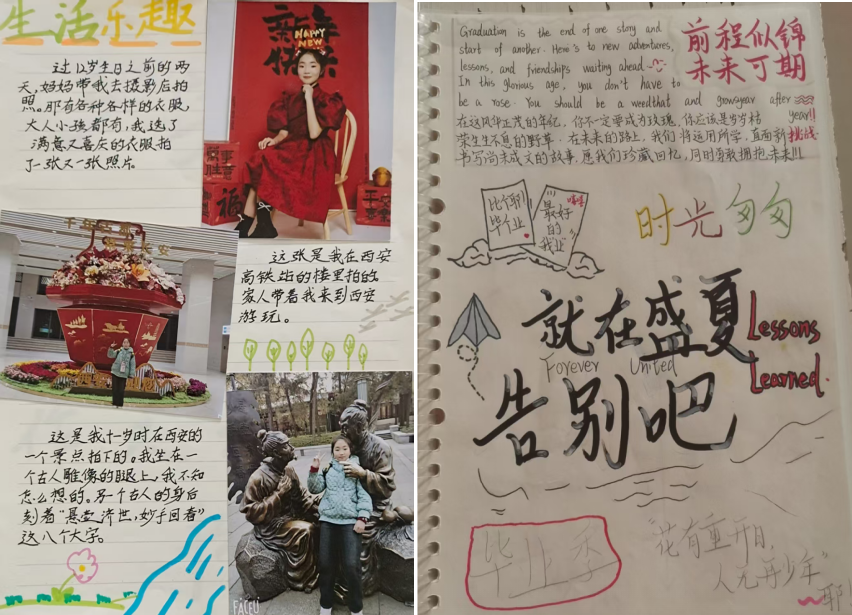 生活乐趣
过12岁生日之前的两
天,妈妈带我去摄影店拍
照。那有各种各样的衣服,
大人小孩都有,我选了
满意又喜庆的衣服拍
了一张又一张照片。
HAPPY
NEW
这张是我在西安
高铁站的楼里拍的。
家人带着我来到西安
游玩。
这是我十一岁时在西安的
一个景点拍下的。我坐在一
个古人雕像的腿上,我不知
怎么想的。另一个古人的身后
刻着“悬壶济世,妙手回春”
这八个大字。
FACEU
Graduation is the end of one story and
start of another. Here's to new adventures,
lessons, and friendships waiting ahead.
In this glorious age, you don't have to
be a rose. You should be a weed that and grows year after
year!!
前程似锦
未来可期
在这风华正茂的年纪,你不一定要成为玫瑰,你应该是岁岁枯
荣生生不息的野草。在未来的路上,我们将运用所学,直面新挑战
书写尚未成文的故事。愿我们珍藏回忆,同时勇敢拥抱未来!!!
比个耶
毕个业
嘻嘻
最好
的
我们
时光匆匆
就在盛夏
告别吧
Lessons
Learned.
Forever United
毕业季
“花有重开日,
人无再少年”
耶!